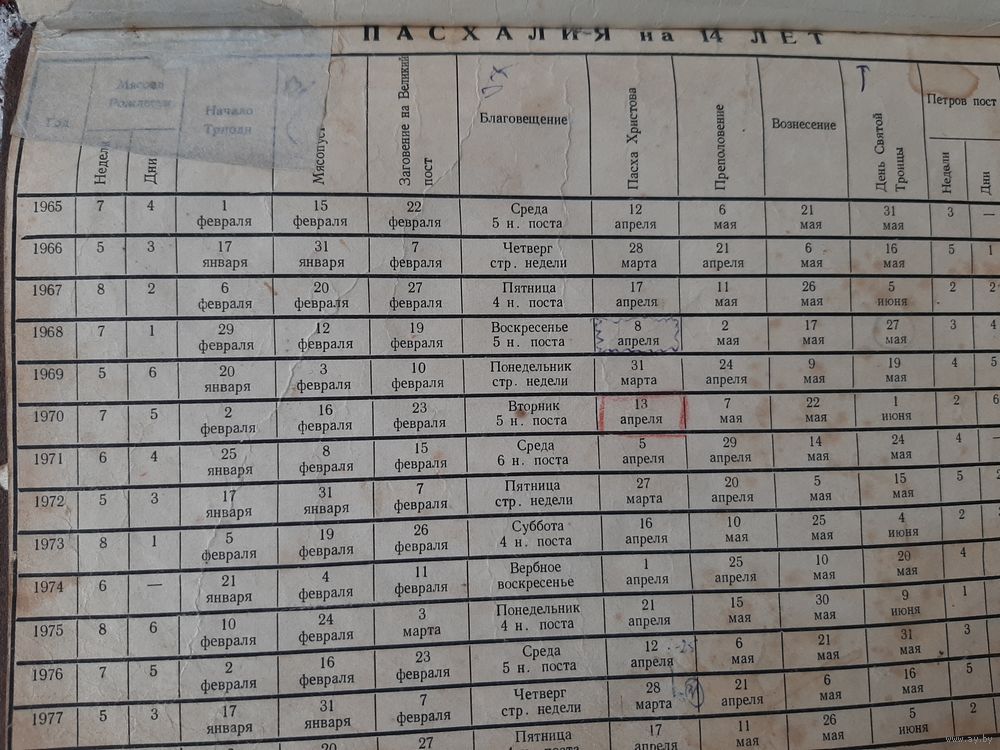 ПАСХАЛИЯ на 14 ЛЕТ
Год
Мясоед
Рождествен
Недели
Дни
Начало
Триоди
Мясопуст
Заговение на Великий
пост
Благовещение
Пасха Христова
Преполовение
Вознесение
День Святой
Троицы
Петров пост
Недели
Дни
1965 7 4 1 15 22 Среда 12 6 21 31 3 —
февраля февраля февраля 5 н. поста апреля мая мая мая
1966 5 3 17 31 7 Четверг 28 21 6 16 5 1
января января февраля стр. недели марта апреля мая мая
1967 8 2 6 20 27 Пятница 17 11 26 5 2 2
февраля февраля февраля 4 н. поста апреля мая мая июня
1968 7 1 29 12 19 Воскресенье 8 2 17 27 3 4
января февраля февраля 5 н. поста апреля мая мая мая
1969 5 6 20 3 10 Понедельник 31 24 9 19 4 5
января февраля февраля стр. недели марта апреля мая мая
1970 7 5 2 16 23 Вторник 13 7 22 1 2 6
февраля февраля февраля 5 н. поста апреля мая мая июня
1971 6 4 25 8 15 Среда 5 29 14 24 4 —
января февраля февраля 6 н. поста апреля апреля мая мая
1972 5 3 17 31 7 Пятница 27 20 5 15 5 2
января января февраля стр. недели марта апреля мая мая
1973 8 1 5 19 26 Суббота 16 10 25 4 2
февраля февраля февраля 4 н. поста апреля мая мая июня
1974 6 — 21 4 11 Вербное 1 25 10 20 4
января февраля февраля воскресенье апреля апреля мая мая
1975 8 6 10 24 3 Понедельник 21 15 30 9 1
февраля февраля марта 4 н. поста апреля мая мая июня
1976 7 5 2 16 23 Среда 12 -25 6 21 31 3
февраля февраля февраля 5 н. поста апреля мая мая мая
1977 5 3 17 31 7 Четверг 28 21 6 16 5
января января февраля стр. недели марта апреля мая мая
20 27 Пятница 17 11 26 5 2
апреля мая мая июня
www.ay.by